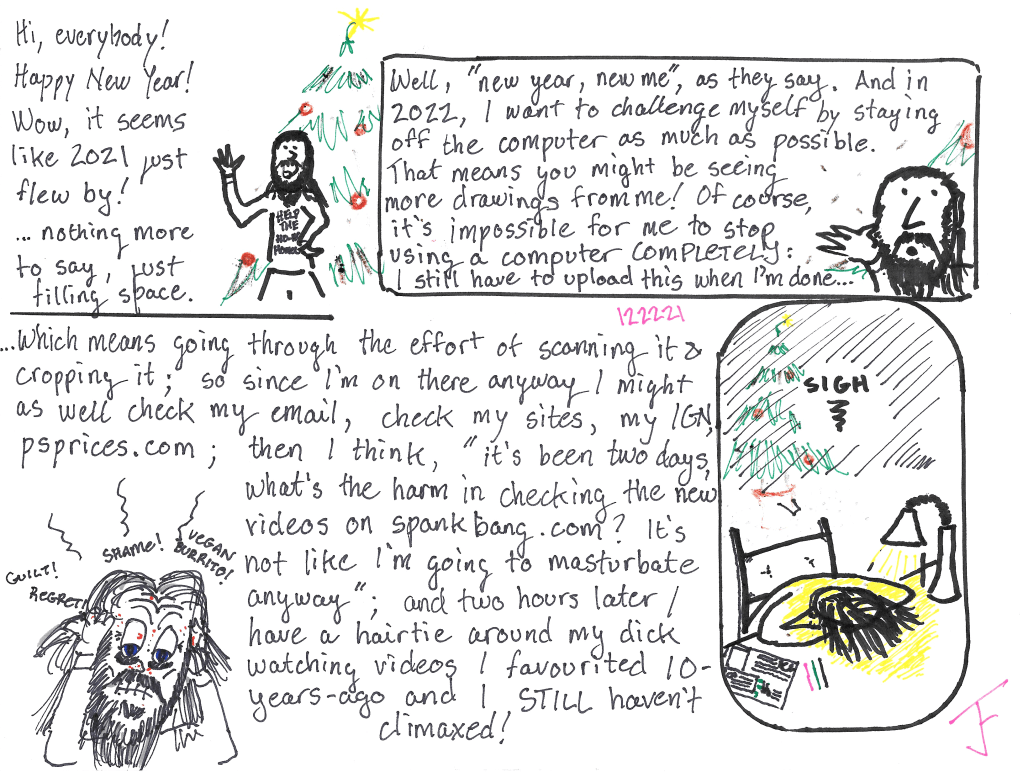 Hi, everybody!
Happy New Year!
Wow, it seems
like 2021 just
flew by!
... nothing more
to say, just
filling space.
HELP
THE
Well, "new year, new me", as they say. And in
2022, I want to challenge myself by staying
off the computer as much as possible.
That means you might be seeing
more drawings from me! Of course,
it's impossible for me to stop
using a computer COMPLETELY:
I still have to upload this when I'm done...
122221
...Which means going through the effort of scanning it &
cropping it; so since I'm on there anyway I might
as well check my email, check my sites, my IGN,
psprices.com; then I think, "it's been two days,
what's the harm in checking the new
videos on spankbang.com? It's
not like I'm going to masturbate
anyway"; and two hours later I
have a hairtie around my dick
watching videos I favourited 10-
years-ago and I STILL haven't
climaxed!
GUILT!
REGRET!
SHAME!
VEGAN
BURRITO!
SIGH
JF